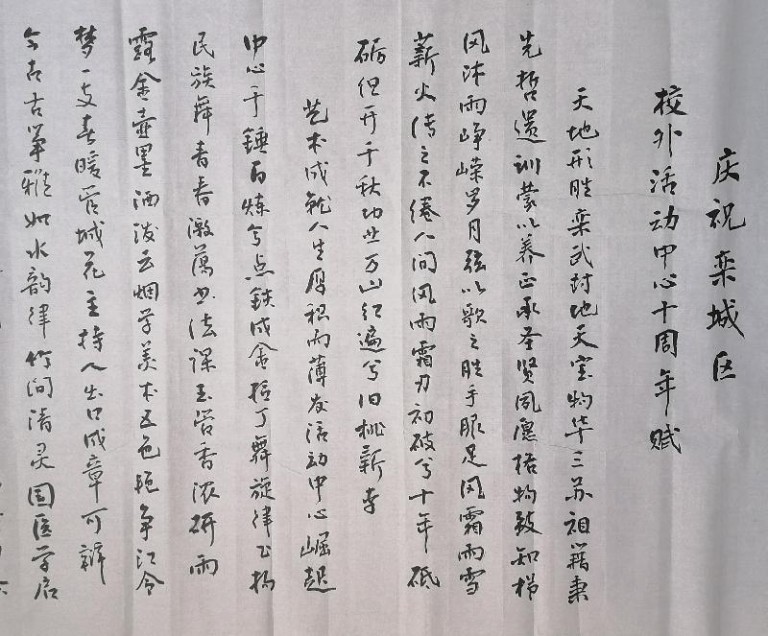 庆祝栾城区
校外活动中心十周年赋
天地形胜栾武封地天宝物华三苏祖籍秉
先哲遗训蒙以养正承圣贤夙愿格物致知栉
风沐雨峥嵘岁月弦以歌之胜手胝足风霜雨雪
薪火传之不倦人间风雨霜刃初破兮十年砥
砺但开千秋功业万山红遍兮旧桃新李
艺术成就人生厚积而薄发活动中心崛起
中心千锤百炼兮点铁成金拉丁舞旋律飞扬
民族舞青春激荡书法课玉管香浓研雨
露金壶墨洒泼云烟学美术五色艳争江令
梦一支春暖管城花主持人出口成章可辨
今古古筝雅如水韵律竹间清灵国医学启